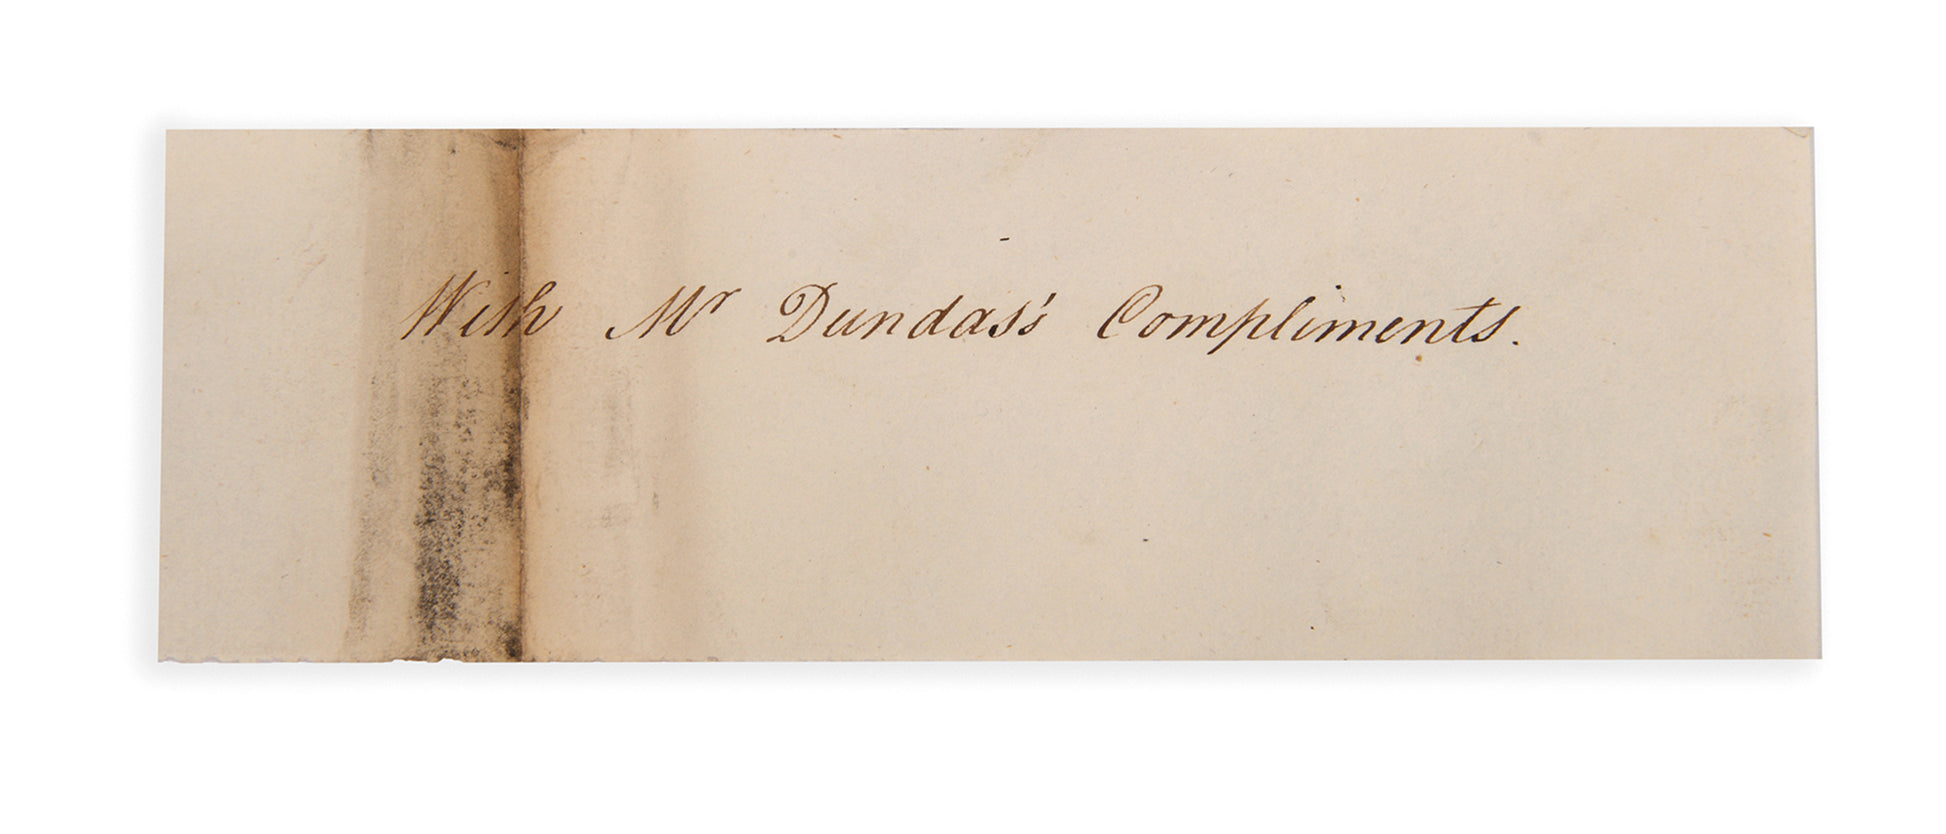 With Mr Dundas's Compliments.